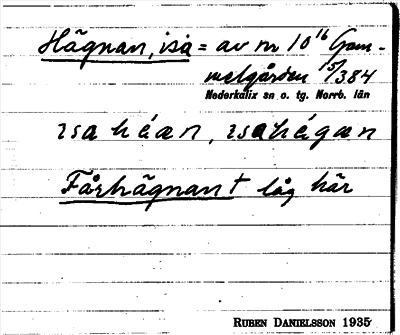 Hägnan, isa = av nr 10¹⁶ Gam-
melgården ⁵/384
Nederkalix sn o. tg. Norrb. län
ısa héæn, ısahégæn
Fårhägnan † låg här
RUBEN DANIELSSON 1935